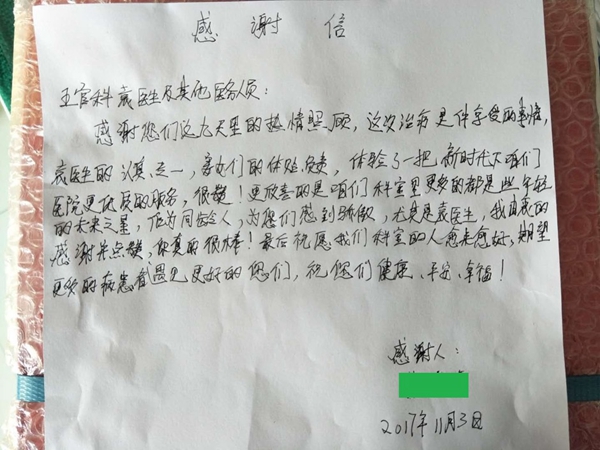 感谢信
五官科袁医生及其他医务人员：
感谢您们这九天里的热情照顾，这次治病是件享受的事情，
袁医生的认真、专一，护士们的体贴负责，体验了一把新时代下咱们
医院更优质的服务，很赞！更欣喜的是咱们科室里更多的都是些年轻
的未来之星，作为同龄人，为您们感到骄傲，尤其是袁医生，我由衷的
感谢并点赞，你真的很棒！最后祝愿我们科室的人愈来愈好，期望
更多的病患者遇见更好的您们，祝您们健康、平安、幸福！
感谢人：
2017年11月3日